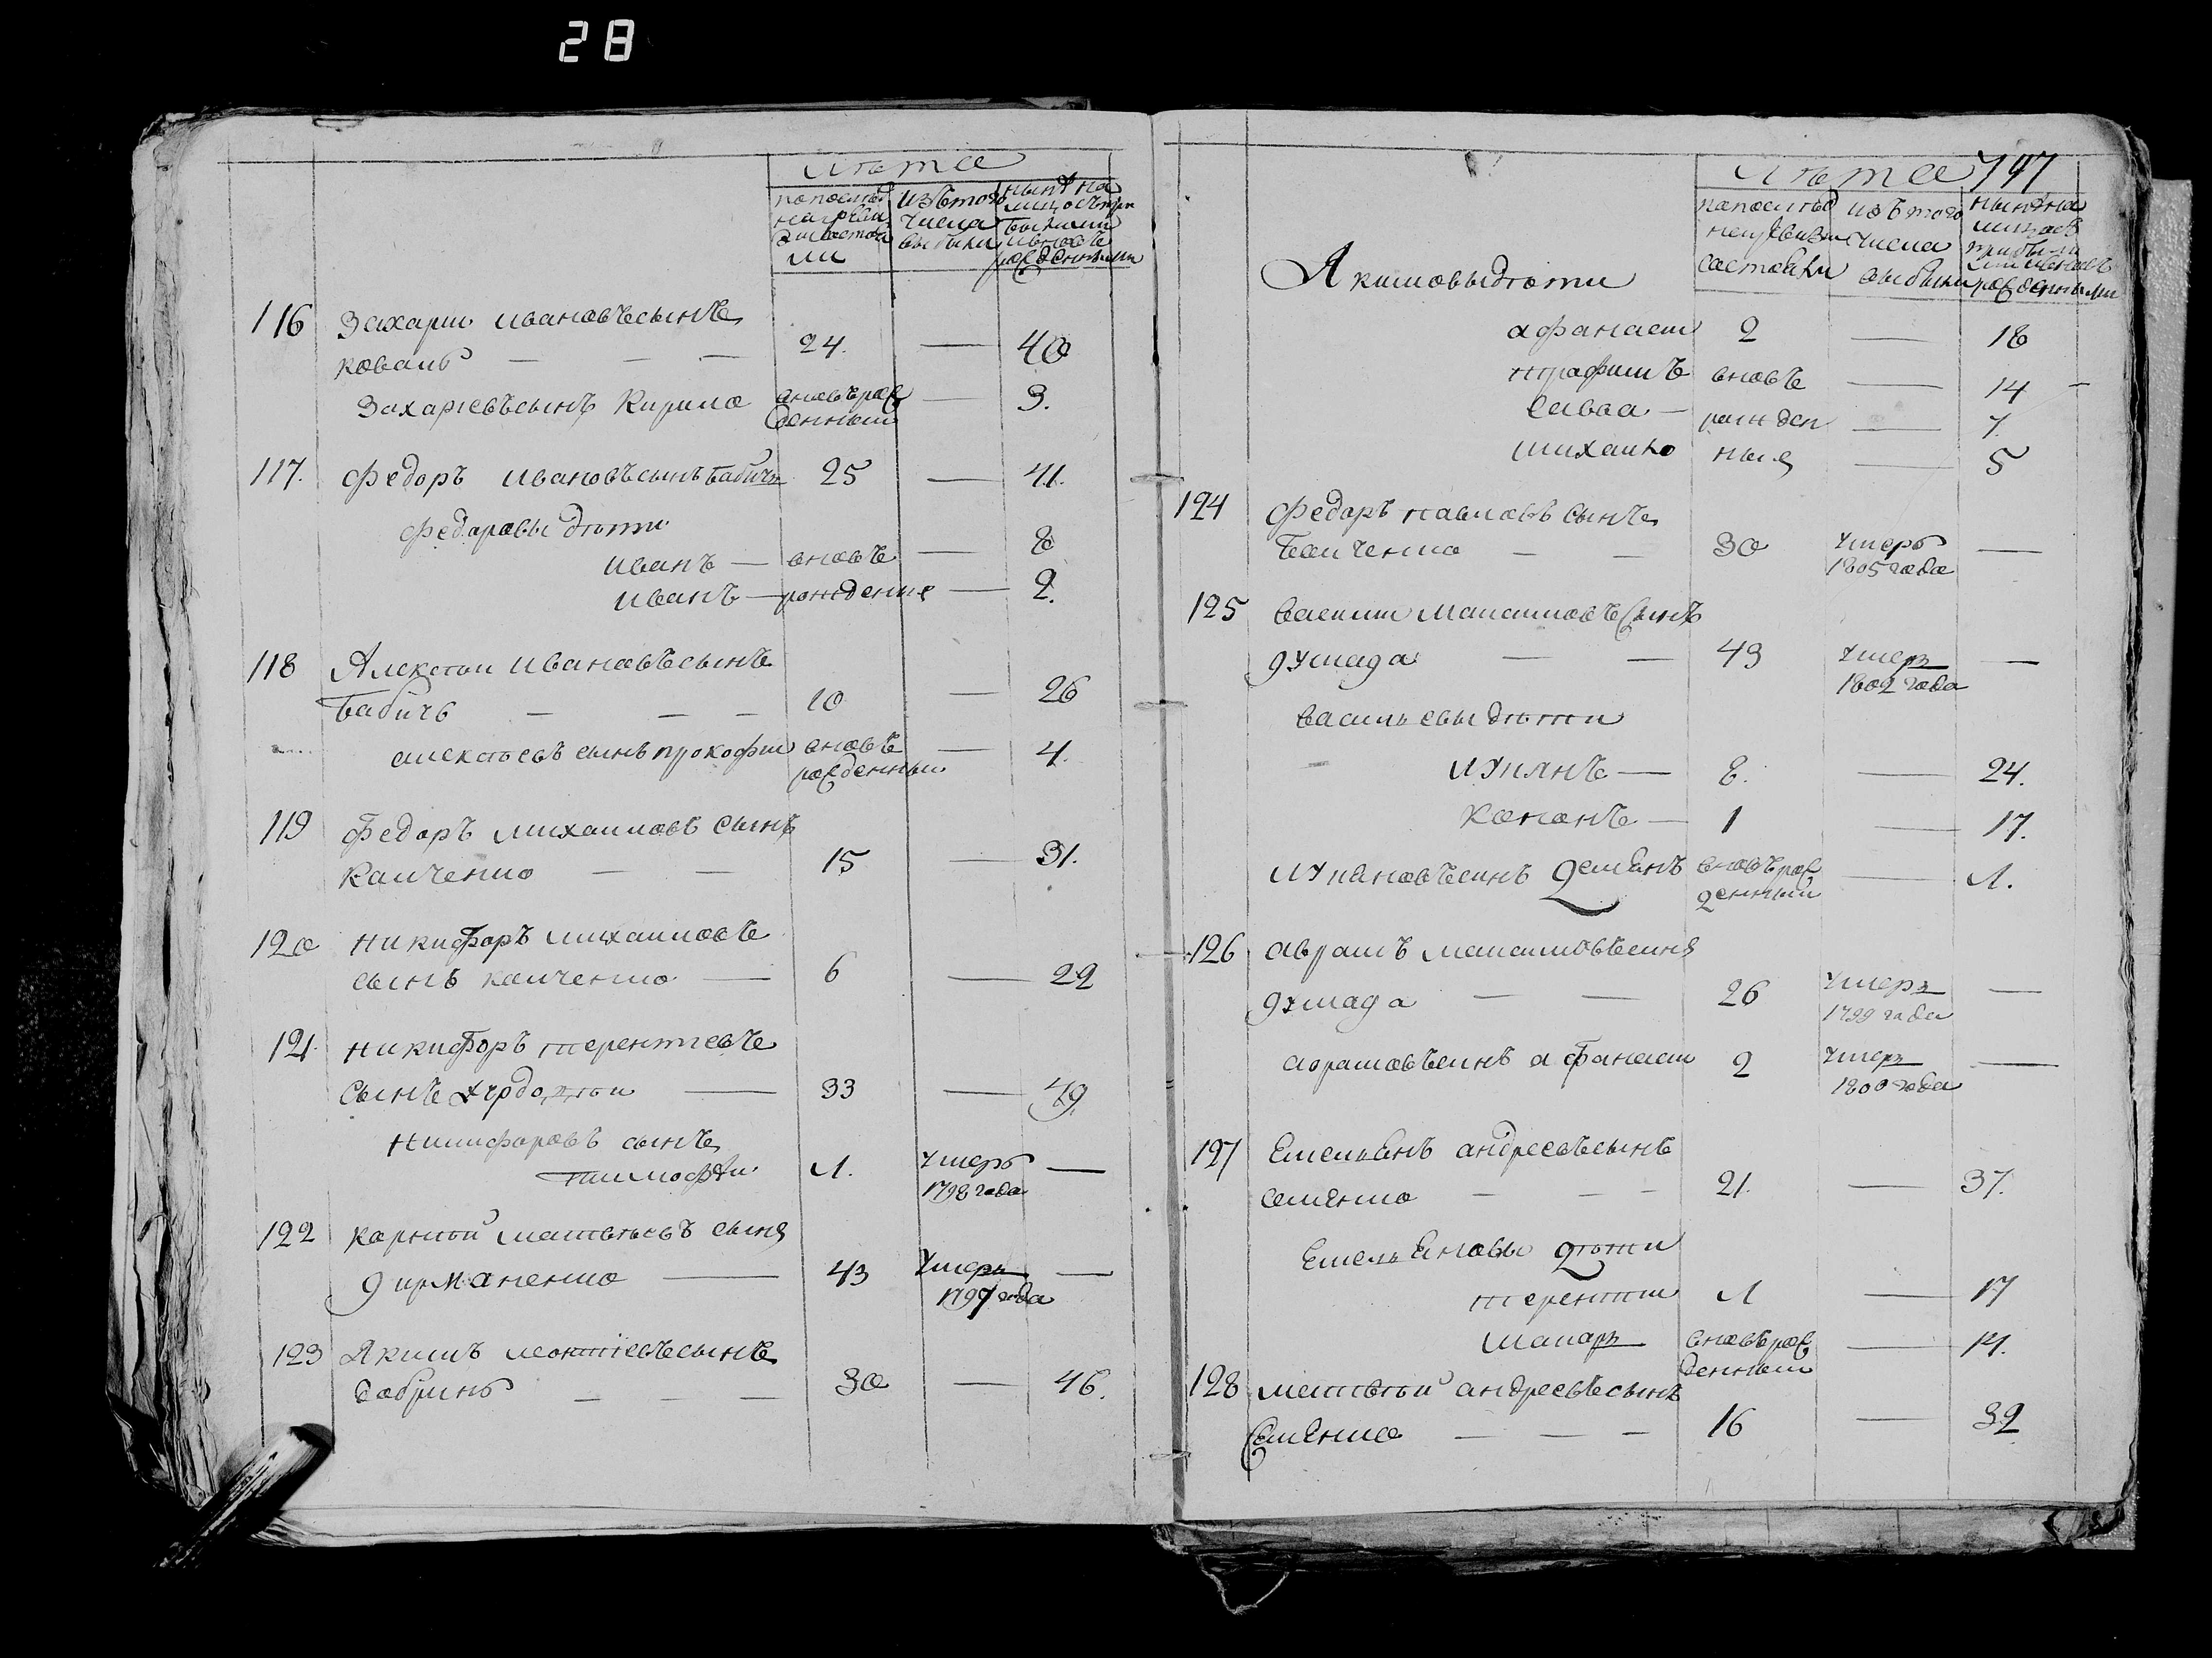 28
лѣта
попослѣд
ней реви
зи состоя
ли
изътого
числа
выбыли
нынѣ на
лицо съ при
былыми
ивновь
рожденными
116 Захарии ивановъ сынъ
коваль — — — 24. — 40
Захариевъ сынъ Кирило вновь рож
денныи — 3.
117. Федоръ ивановъ сынъ бабичъ 25 — 41.
Федоровы дѣти
иванъ — вновь — 8
иванъ — рождение — 2.
118 Алексѣи ивановъ сынъ
бабичь — — — 10 — 26
алексѣевъ сынъ прокофии вновь
рожденныи — 4.
119 Федоръ михаиловъ сынъ
каиченко — — 15 — 31.
120 никифоръ михаиловъ
сынъ каиченко — 6 — 22
121. никифоръ терентиевъ
сынъ — 33 — 49.
никифоровъ сынъ
тимофѣи л. умеръ
1798 года —
122 карнѣй матвѣевъ сынъ
дирманенко — 43 умеръ
1797 года —
123 Якимъ леонтиевъ сынъ
бобринь — — — 30 — 46.
лѣта 747
попослѣд
неи ревизи
состояли
изъ того
числа
выбыли
нынѣ на
лицо съ
прибылы
ми ивновь
рожденными
Якимовы дѣти
афанасии 2 — 18
трофимъ вновь — 14 —
савва — рожден — 7.
михаило ныя — 5
124 Федоръ павловъ сынъ
каиченко — — 30 умеръ
1805 года —
125 василии максимовъ сынъ
думада — — 43 умеръ
1802 года —
васильевы дѣти
лукянъ — 8. — 24.
кононъ — 1 — 17.
лукяновъ синъ демянъ вновь рож
денныи — л.
126 аврамъ максимовъ синъ
думада — — 26 умеръ
1799 года —
аврамовъ синъ афанасии 2 умеръ
1800 года —
127 Емельянъ андреевъ сынъ
семенко — — — 21. — 37.
Емельяновы дѣти
терентии л — 17
макаръ вновь рож
денныи — 14.
128 матвѣй андреевъ сынъ
семенко — — — 16 — 32